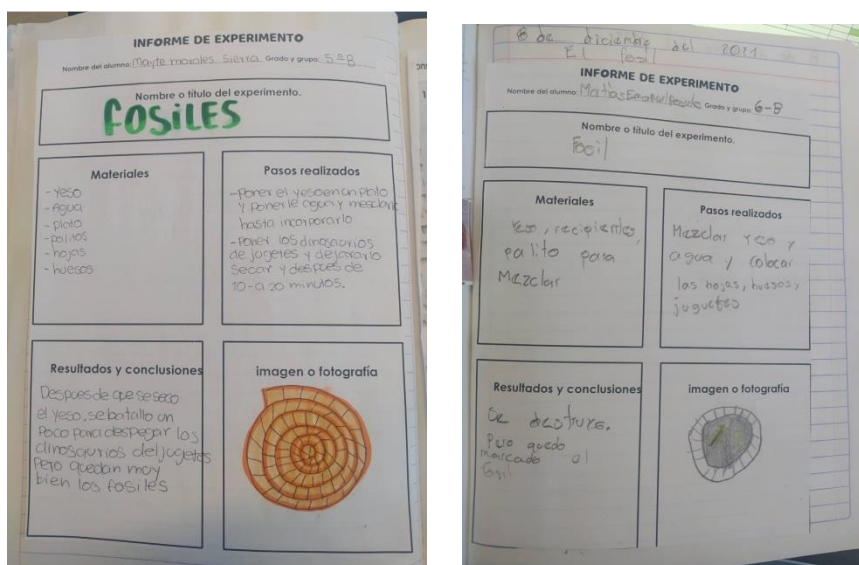 INFORME DE EXPERIMENTO
Nombre del alumno: Mayte morales Sierra Grado y grupo: 5=B
Nombre o título del experimento.
FOSiLES
Materiales
- yeso
- Agua
- plato
- palitos
- hojas
- huesos
Pasos realizados
-poner el yeso en un plato
y ponerle agua y mesclarlo
hasta incorporarlo
-poner los dinosaurios
de jugetes y dejararlo
secar y despues de
10-a 20 minutos.
Resultados y conclusiones
Despues de que se seco
el yeso, se batallo un
poco para despegar los
dinosaurios del jugetes
pero quedan muy
bien los fosiles
imagen o fotografía
8 de diciembre del 2021
El fosil
INFORME DE EXPERIMENTO
Nombre del alumno: Matias Grado y grupo: 6-B
Nombre o título del experimento.
Fosil
Materiales
Yeso, recipientes,
palito para
Mezclar
Pasos realizados
Mezclar yeso y
agua y colocar
las hojas, huesos,
juguetes
Resultados y conclusiones
Se destruye.
Pero quedo
marcado el
fosil
imagen o fotografía